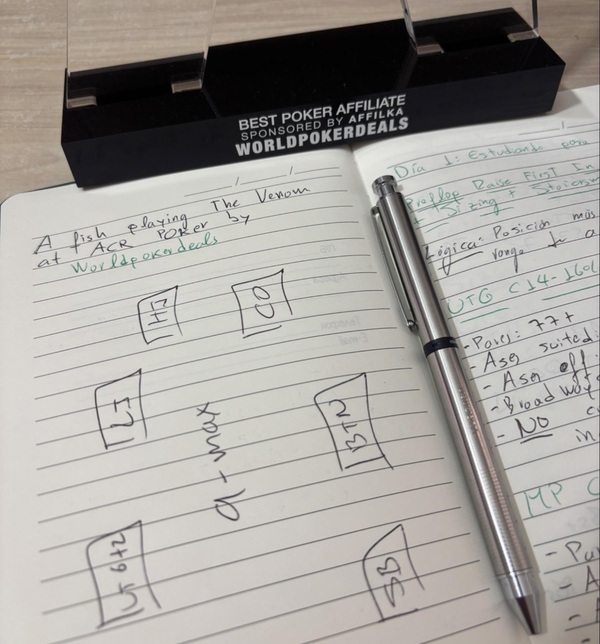 BEST POKER AFFILIATE
SPONSORED BY AFFILKA
WORLDPOKERDEALS
A fish playing The Venom
at ACR POKER by
Worldpokerdeals
HJ
CO
LJ
BTN
9-max
UTG+2
SB
Día 1: Estudiando para
Preflop Raise First In
+ Sizing +
Lógica: Posición más
rango
UTG (14-16%
- Pares: 77+
- Ases suited:
- Ases off:
- Broadways
- NO
in
MP